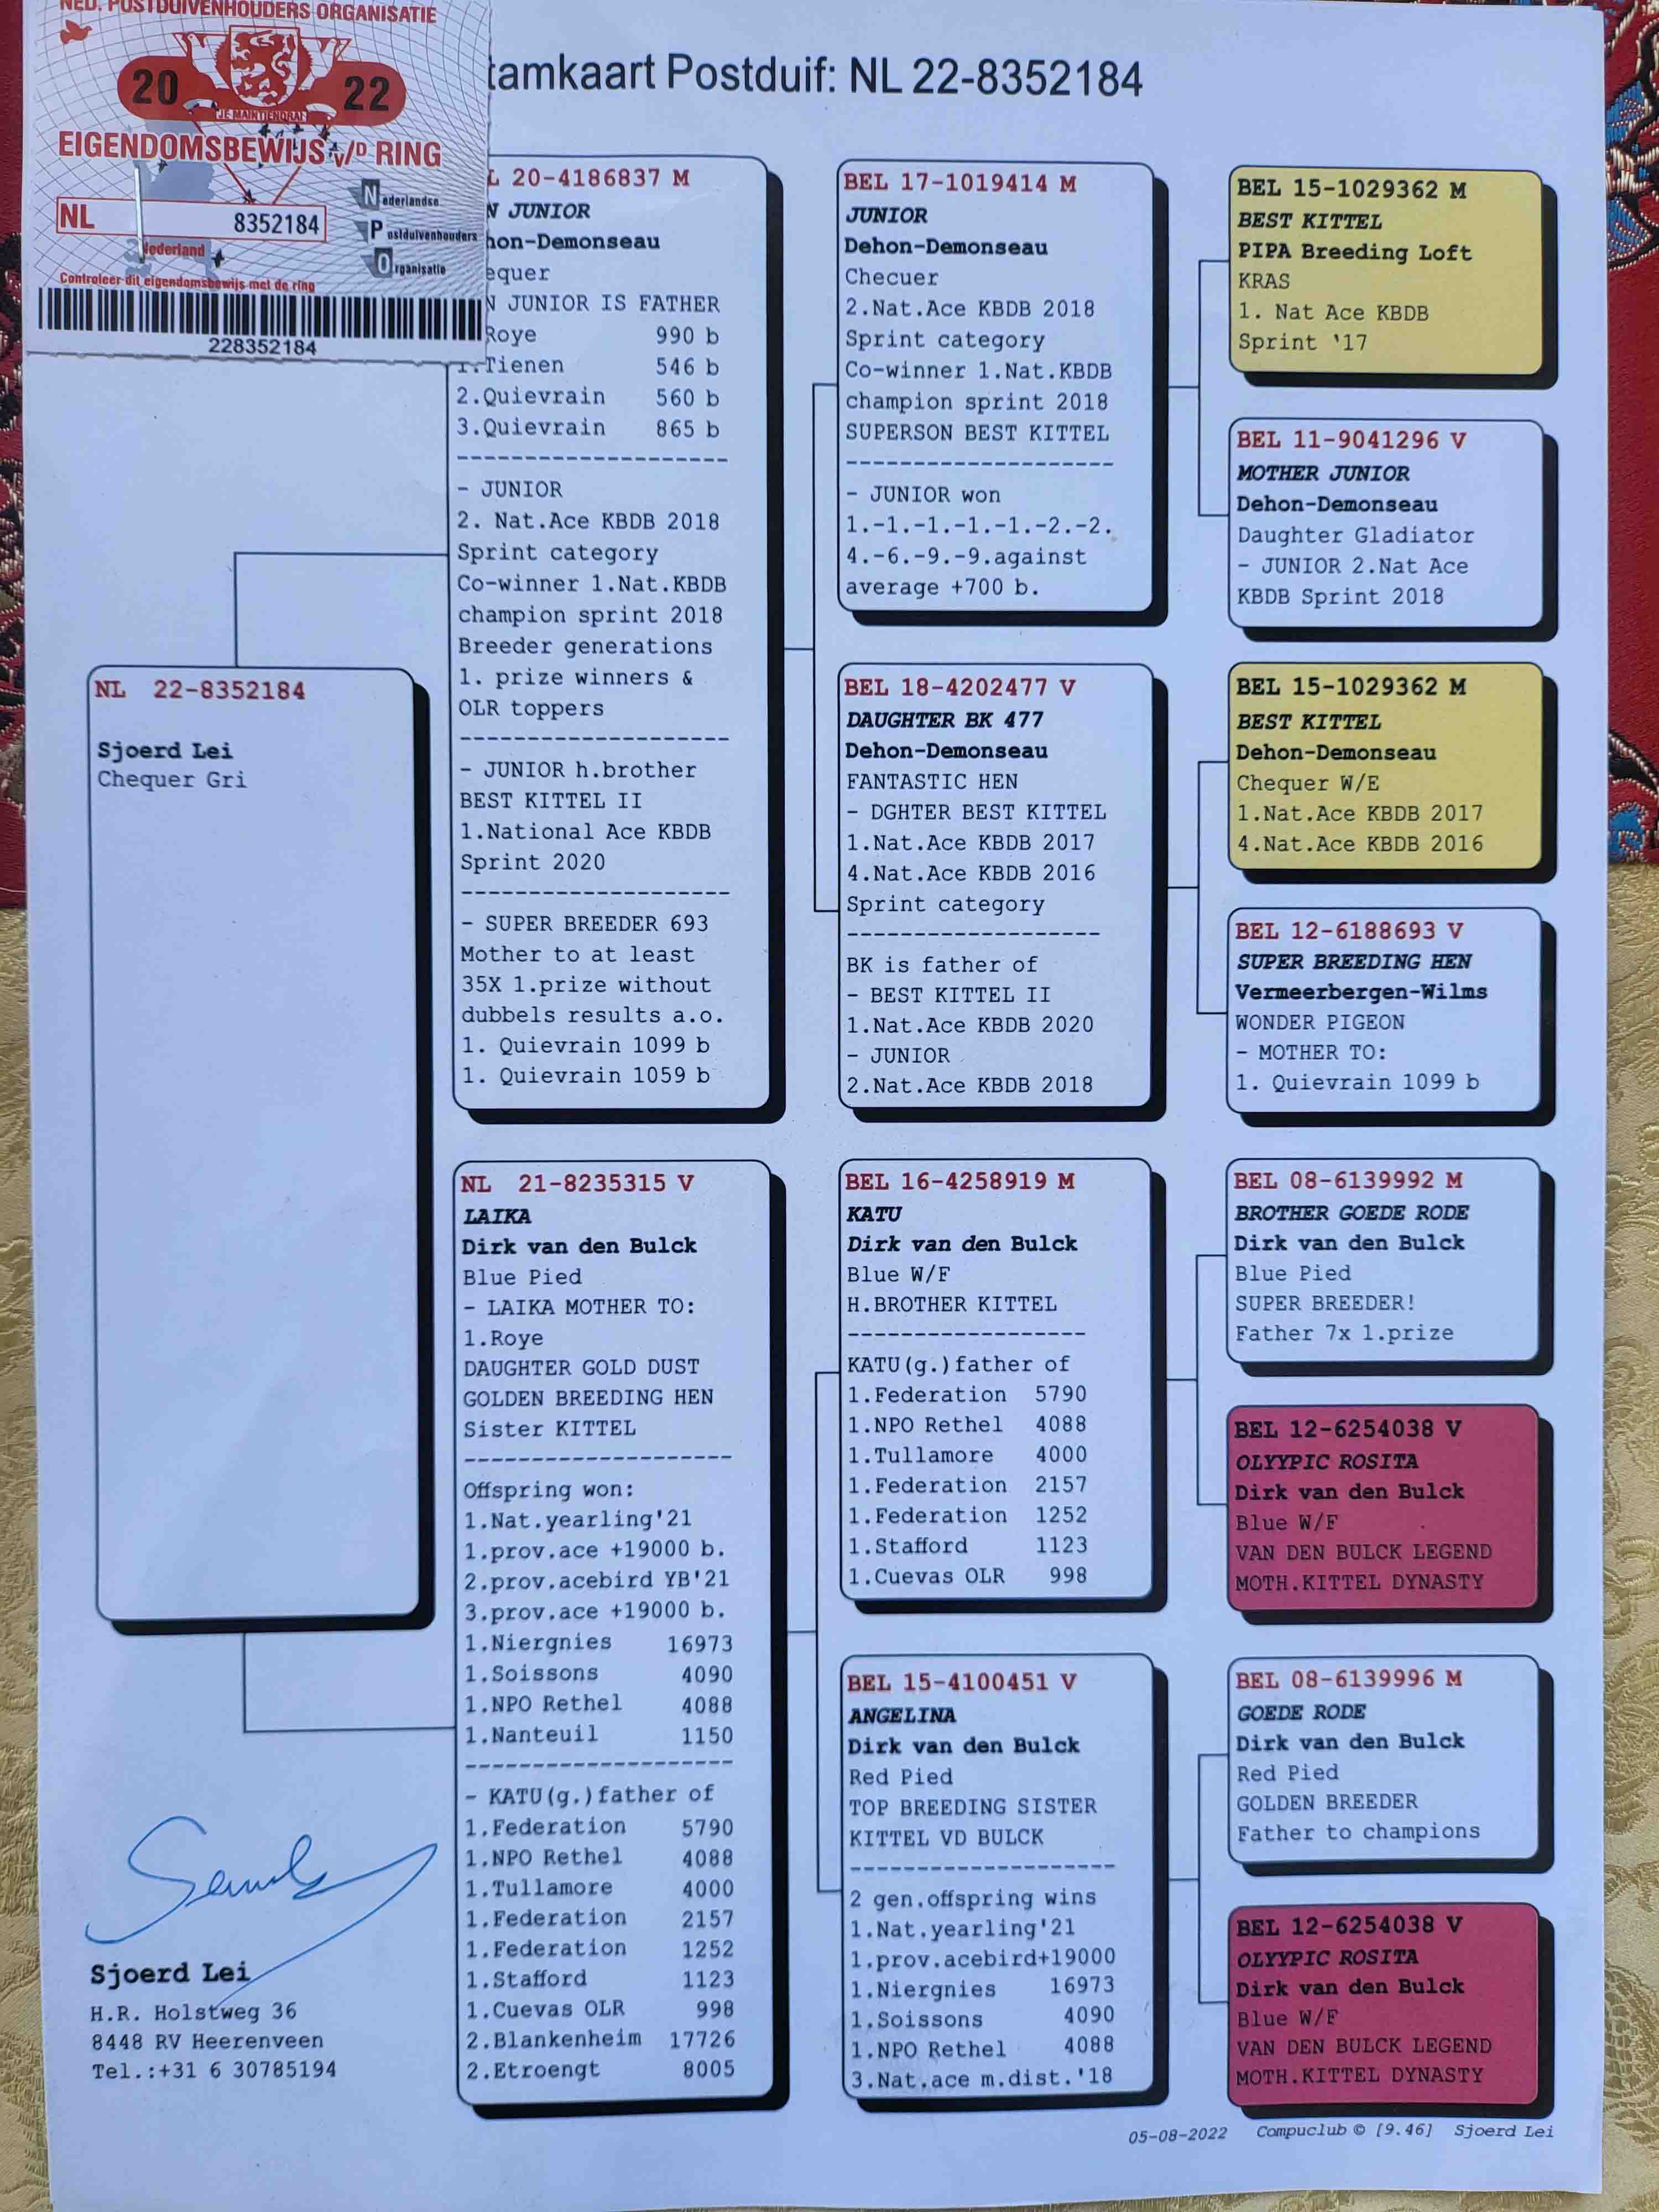 NED. POSTDUIVENHOUDERS ORGANISATIE
20 22
JE MAINTIENDRAI
EIGENDOMSBEWIJS v/D RING
NL 8352184
Nederlandse
Postduivenhouders
Organisatie
Nederland
Controleer dit eigendomsbewijs met de ring
228352184
tamkaart Postduif: NL 22-8352184
NL 22-8352184
Sjoerd Lei
Chequer Gri
L 20-4186837 M
N JUNIOR
hon-Demonseau
equer
N JUNIOR IS FATHER
Roye 990 b
1.Tienen 546 b
2.Quievrain 560 b
3.Quievrain 865 b
--------------------
- JUNIOR
2. Nat.Ace KBDB 2018
Sprint category
Co-winner 1.Nat.KBDB
champion sprint 2018
Breeder generations
1. prize winners &
OLR toppers
--------------------
- JUNIOR h.brother
BEST KITTEL II
1.National Ace KBDB
Sprint 2020
--------------------
- SUPER BREEDER 693
Mother to at least
35X 1.prize without
dubbels results a.o.
1. Quievrain 1099 b
1. Quievrain 1059 b
NL 21-8235315 V
LAIKA
Dirk van den Bulck
Blue Pied
- LAIKA MOTHER TO:
1.Roye
DAUGHTER GOLD DUST
GOLDEN BREEDING HEN
Sister KITTEL
--------------------
Offspring won:
1.Nat.yearling'21
1.prov.ace +19000 b.
2.prov.acebird YB'21
3.prov.ace +19000 b.
1.Niergnies 16973
1.Soissons 4090
1.NPO Rethel 4088
1.Nanteuil 1150
--------------------
- KATU(g.)father of
1.Federation 5790
1.NPO Rethel 4088
1.Tullamore 4000
1.Federation 2157
1.Federation 1252
1.Stafford 1123
1.Cuevas OLR 998
2.Blankenheim 17726
2.Etroengt 8005
BEL 17-1019414 M
JUNIOR
Dehon-Demonseau
Checuer
2.Nat.Ace KBDB 2018
Sprint category
Co-winner 1.Nat.KBDB
champion sprint 2018
SUPERSON BEST KITTEL
--------------------
- JUNIOR won
1.-1.-1.-1.-1.-2.-2.
4.-6.-9.-9.against
average +700 b.
BEL 18-4202477 V
DAUGHTER BK 477
Dehon-Demonseau
FANTASTIC HEN
- DGHTER BEST KITTEL
1.Nat.Ace KBDB 2017
4.Nat.Ace KBDB 2016
Sprint category
-------------------
BK is father of
- BEST KITTEL II
1.Nat.Ace KBDB 2020
- JUNIOR
2.Nat.Ace KBDB 2018
BEL 16-4258919 M
KATU
Dirk van den Bulck
Blue W/F
H.BROTHER KITTEL
------------------
KATU(g.)father of
1.Federation 5790
1.NPO Rethel 4088
1.Tullamore 4000
1.Federation 2157
1.Federation 1252
1.Stafford 1123
1.Cuevas OLR 998
BEL 15-4100451 V
ANGELINA
Dirk van den Bulck
Red Pied
TOP BREEDING SISTER
KITTEL VD BULCK
--------------------
2 gen.offspring wins
1.Nat.yearling'21
1.prov.acebird+19000
1.Niergnies 16973
1.Soissons 4090
1.NPO Rethel 4088
3.Nat.ace m.dist.'18
BEL 15-1029362 M
BEST KITTEL
PIPA Breeding Loft
KRAS
1. Nat Ace KBDB
Sprint '17
BEL 11-9041296 V
MOTHER JUNIOR
Dehon-Demonseau
Daughter Gladiator
- JUNIOR 2.Nat Ace
KBDB Sprint 2018
BEL 15-1029362 M
BEST KITTEL
Dehon-Demonseau
Chequer W/E
1.Nat.Ace KBDB 2017
4.Nat.Ace KBDB 2016
BEL 12-6188693 V
SUPER BREEDING HEN
Vermeerbergen-Wilms
WONDER PIGEON
- MOTHER TO:
1. Quievrain 1099 b
BEL 08-6139992 M
BROTHER GOEDE RODE
Dirk van den Bulck
Blue Pied
SUPER BREEDER!
Father 7x 1.prize
BEL 12-6254038 V
OLYYPIC ROSITA
Dirk van den Bulck
Blue W/F
VAN DEN BULCK LEGEND
MOTH.KITTEL DYNASTY
BEL 08-6139996 M
GOEDE RODE
Dirk van den Bulck
Red Pied
GOLDEN BREEDER
Father to champions
BEL 12-6254038 V
OLYYPIC ROSITA
Dirk van den Bulck
Blue W/F
VAN DEN BULCK LEGEND
MOTH.KITTEL DYNASTY
Sjoerd Lei
H.R. Holstweg 36
8448 RV Heerenveen
Tel.:+31 6 30785194
05-08-2022 Compuclub © [9.46] Sjoerd Lei